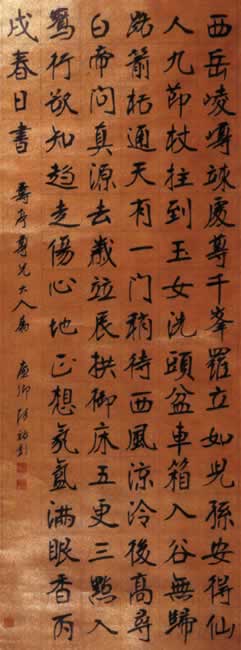 西岳崚嶒竦處尊千峯羅立如兒孫安得仙
人九節杖拄到玉女洗頭盆車箱入谷無歸
路箭栝通天有一門稍待西風涼冷後高尋
白帝問真源去歲茲辰拱御床五更三點入
鵷行欲知趨走傷心地正想氤氳滿眼香丙
戌春日書 尊兄大人屬 廉卿張裕釗